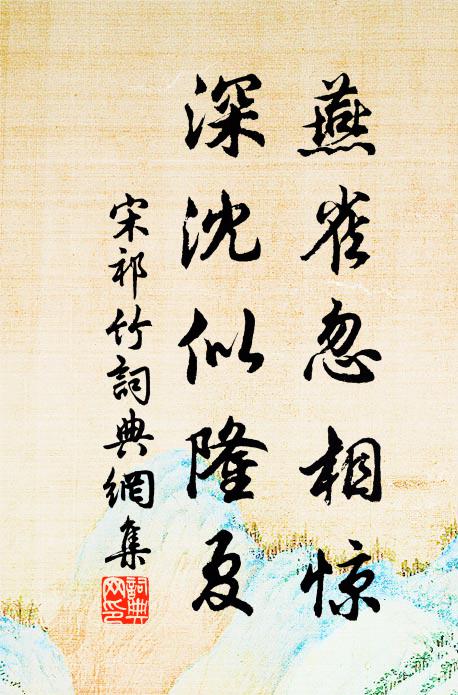 燕雀忽相惊
深沈似隆夏
宋祁竹詞典網集
詞典
网印